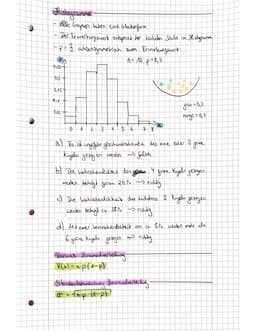 Histogramme
- Alle Graphen haben eine Glockenform
- Der Erwartungswert entspricht der höchsten Säule im Histogramm
- p = ½ achsensymmetrisch zum Erwartungswert
n = 10 p = 0,3
0 1 2 3 4 5 6 7 8
grün = 0,3
a) Es ist ungefähr gleichwahrscheinlich das eine oder 5 grüne
Kugeln gezogen werden → falsch
b) Die Wahrscheinlichkeit das 4 grüne Kugeln gezogen
werden beträgt genau 20% → richtig
c) Die Wahrscheinlichkeit das höchstens 2 Kugeln gezogen
werden beträgt ca. 38% → richtig
d) Mit einer Wahrscheinlichkeit von ca. 5% werden mehr als
6 grüne Kugeln gezogen → richtig